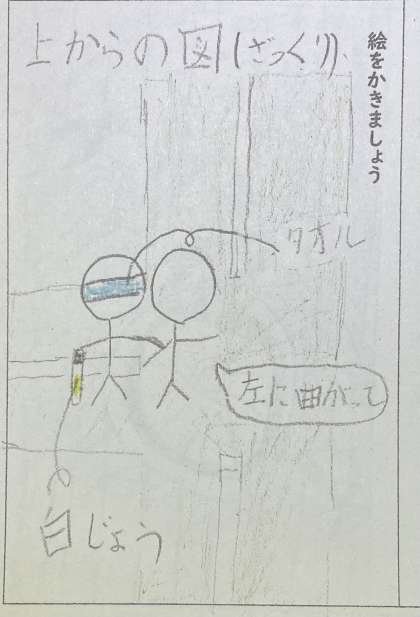 絵をかきましょう
上からの図(ざっくり)
タオル
左に曲がって
白じょう